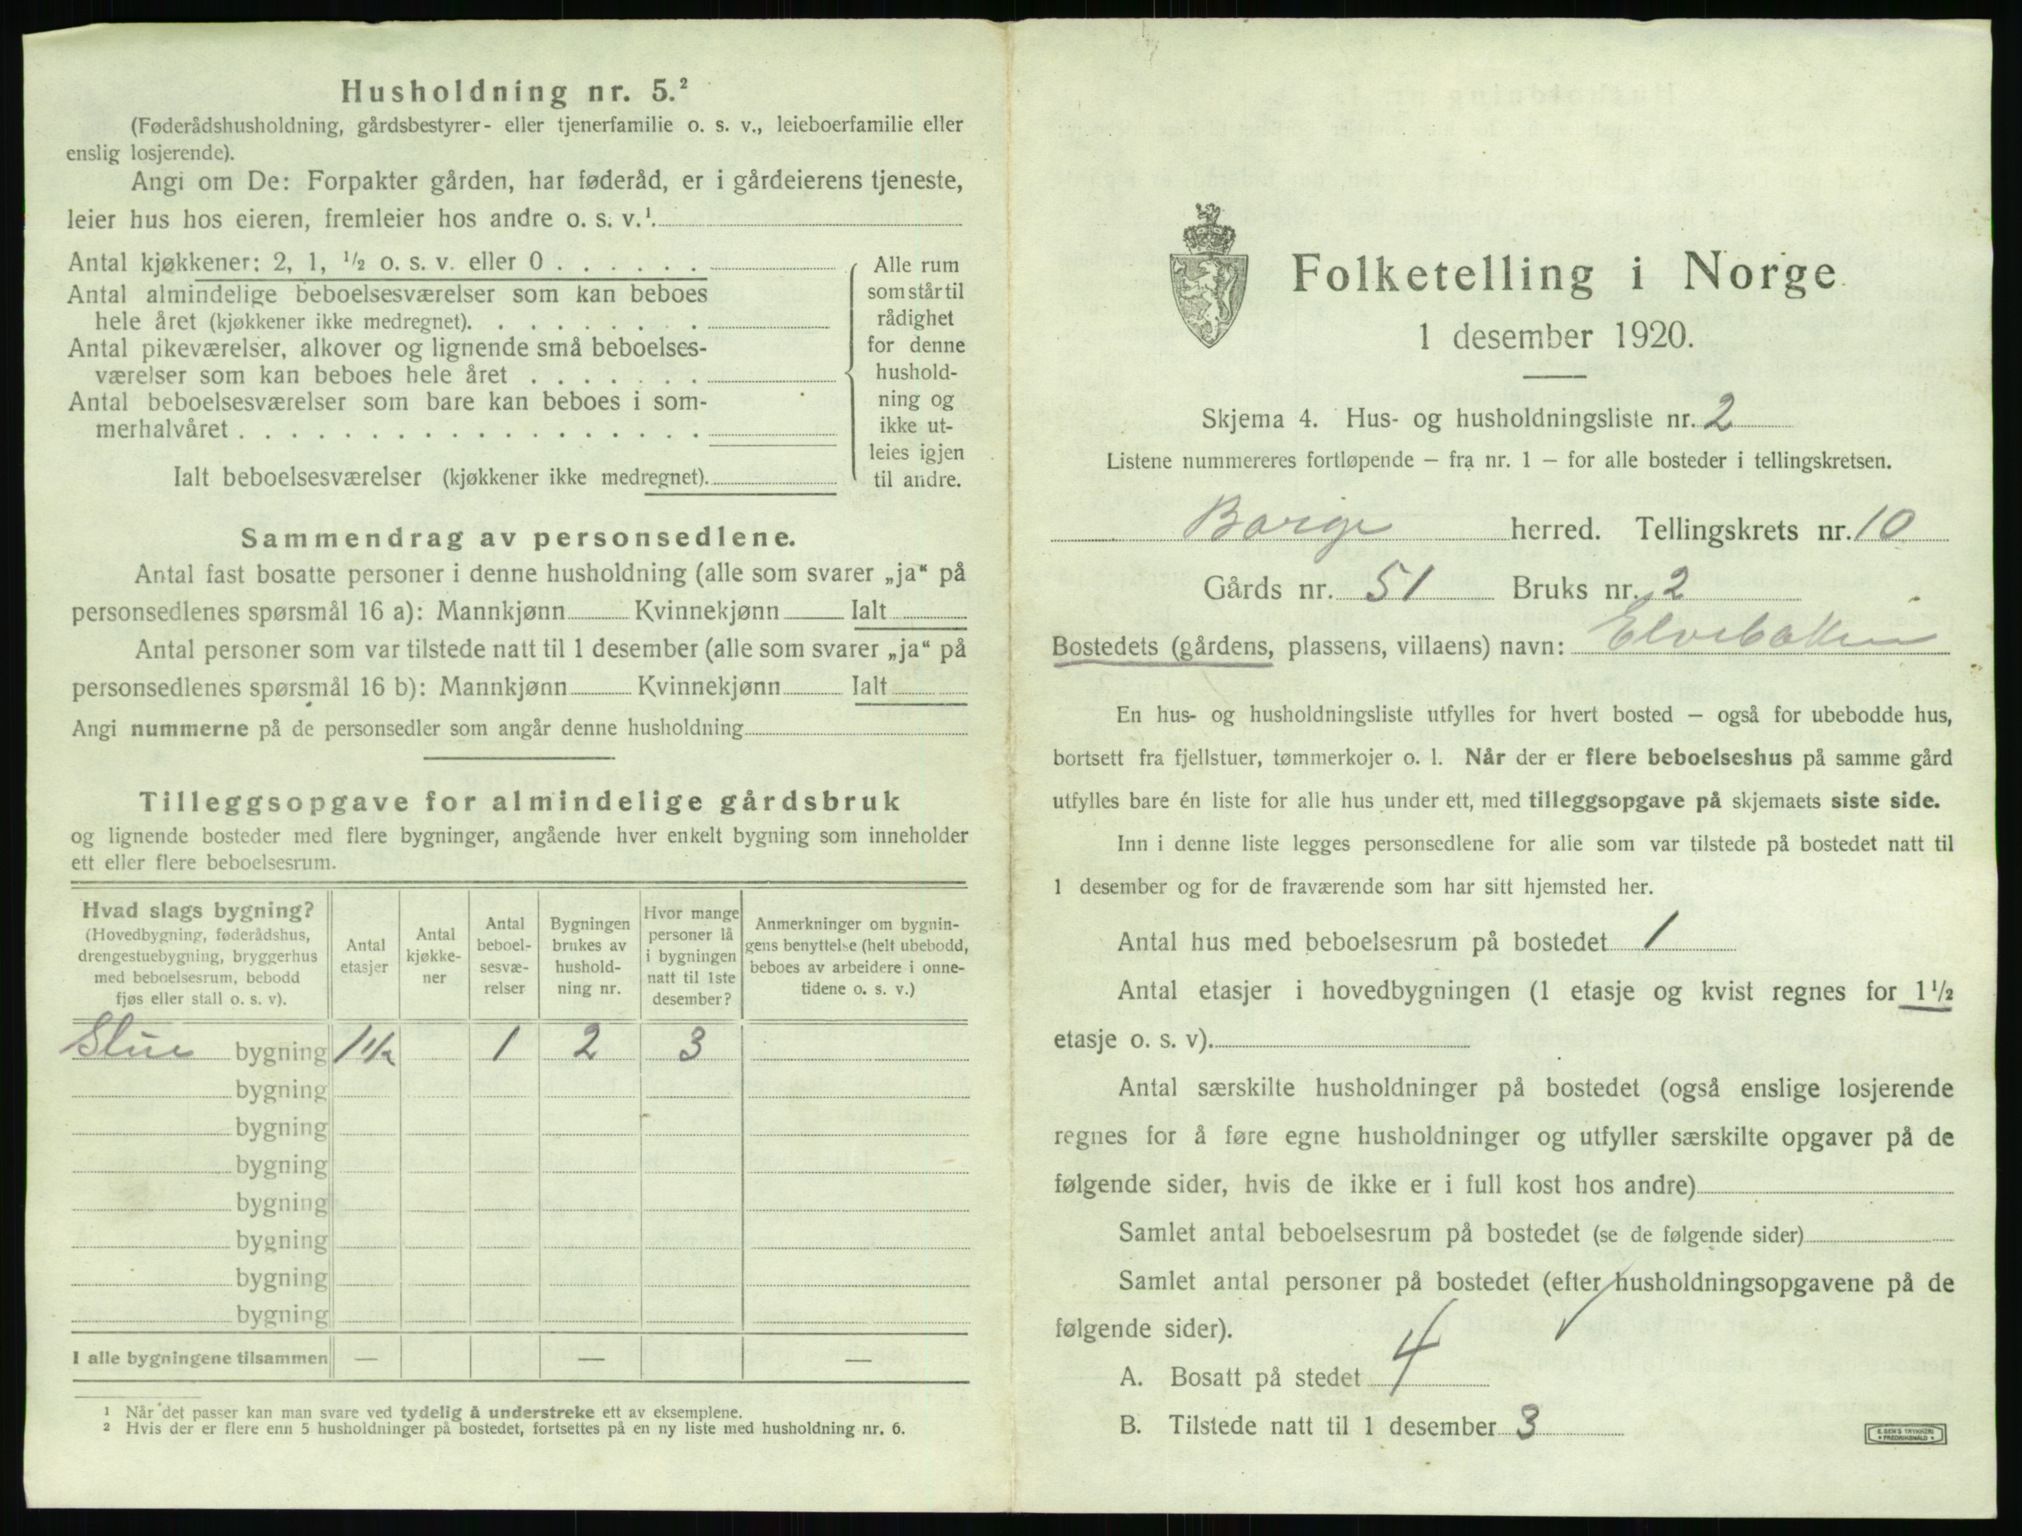 Husholdning nr. 5.²
(Føderådshusholdning, gårdsbestyrer- eller tjenerfamilie o. s. v., leieboerfamilie eller
enslig losjerende).
Angi om De: Forpakter gården, har føderåd, er i gårdeierens tjeneste,
leier hus hos eieren, fremleier hos andre o. s. v.¹
Antal kjøkkener: 2, 1, ½ o. s. v. eller 0 . . . . . .
Antal almindelige beboelsesværelser som kan beboes
hele året (kjøkkener ikke medregnet). . . . . . . . .
Antal pikeværelser, alkover og lignende små beboelses-
værelser som kan beboes hele året . . . . . . .
Antal beboelsesværelser som bare kan beboes i som-
merhalvåret . . . . . . . . . . . . . . . . . .
Ialt beboelsesværelser (kjøkkener ikke medregnet).
Alle rum
som står til
rådighet
for denne
hushold-
ning og
ikke ut-
leies igjen
til andre.
Sammendrag av personsedlene.
Antal fast bosatte personer i denne husholdning (alle som svarer „ja“ på
personsedlenes spørsmål 16 a): Mannkjønn Kvinnekjønn Ialt
Antal personer som var tilstede natt til 1 desember (alle som svarer „ja“ på
personsedlenes spørsmål 16 b): Mannkjønn Kvinnekjønn Ialt
Angi nummerne på de personsedler som angår denne husholdning
Tilleggsopgave for almindelige gårdsbruk
og lignende bosteder med flere bygninger, angående hver enkelt bygning som inneholder
ett eller flere beboelsesrum.
Hvad slags bygning?
(Hovedbygning, føderådshus,
drengestuebygning, bryggerhus
med beboelsesrum, bebodd
fjøs eller stall o. s. v).
Antal
etasjer
Antal
kjøkke-
ner
Antal
beboel-
sesvæ-
relser
Bygningen
brukes av
hushold-
ning nr.
Hvor mange
personer lå
i bygningen
natt til 1ste
desember?
Anmerkninger om bygnin-
gens benyttelse (helt ubebodd,
beboes av arbeidere i onne-
tidene o. s. v.)
Stue bygning 1 1/2 1 2 3
bygning
bygning
bygning
bygning
bygning
bygning
bygning
I alle bygningene tilsammen — — —
¹ Når det passer kan man svare ved tydelig å understreke ett av eksemplene.
² Hvis der er flere enn 5 husholdninger på bostedet, fortsettes på en ny liste med husholdning nr. 6.
Folketelling i Norge
1 desember 1920.
Skjema 4. Hus- og husholdningsliste nr. 2
Listene nummereres fortløpende – fra nr. 1 – for alle bosteder i tellingskretsen.
Borge herred. Tellingskrets nr. 10
Gårds nr. 51 Bruks nr. 2
Bostedets (gårdens, plassens, villaens) navn: Elvebakken
En hus- og husholdningsliste utfylles for hvert bosted – også for ubebodde hus,
bortsett fra fjellstuer, tømmerkojer o. l. Når der er flere beboelseshus på samme gård
utfylles bare én liste for alle hus under ett, med tilleggsopgave på skjemaets siste side.
Inn i denne liste legges personsedlene for alle som var tilstede på bostedet natt til
1 desember og for de fraværende som har sitt hjemsted her.
Antal hus med beboelsesrum på bostedet 1
Antal etasjer i hovedbygningen (1 etasje og kvist regnes for 1 ½
etasje o. s. v).
Antal særskilte husholdninger på bostedet (også enslige losjerende
regnes for å føre egne husholdninger og utfyller særskilte opgaver på de
følgende sider, hvis de ikke er i full kost hos andre)
Samlet antal beboelsesrum på bostedet (se de følgende sider)
Samlet antal personer på bostedet (efter husholdningsopgavene på de
følgende sider).
A. Bosatt på stedet 4
B. Tilstede natt til 1 desember 3
E. SEM'S TRYKKERI
• FREDRIKSHALD •